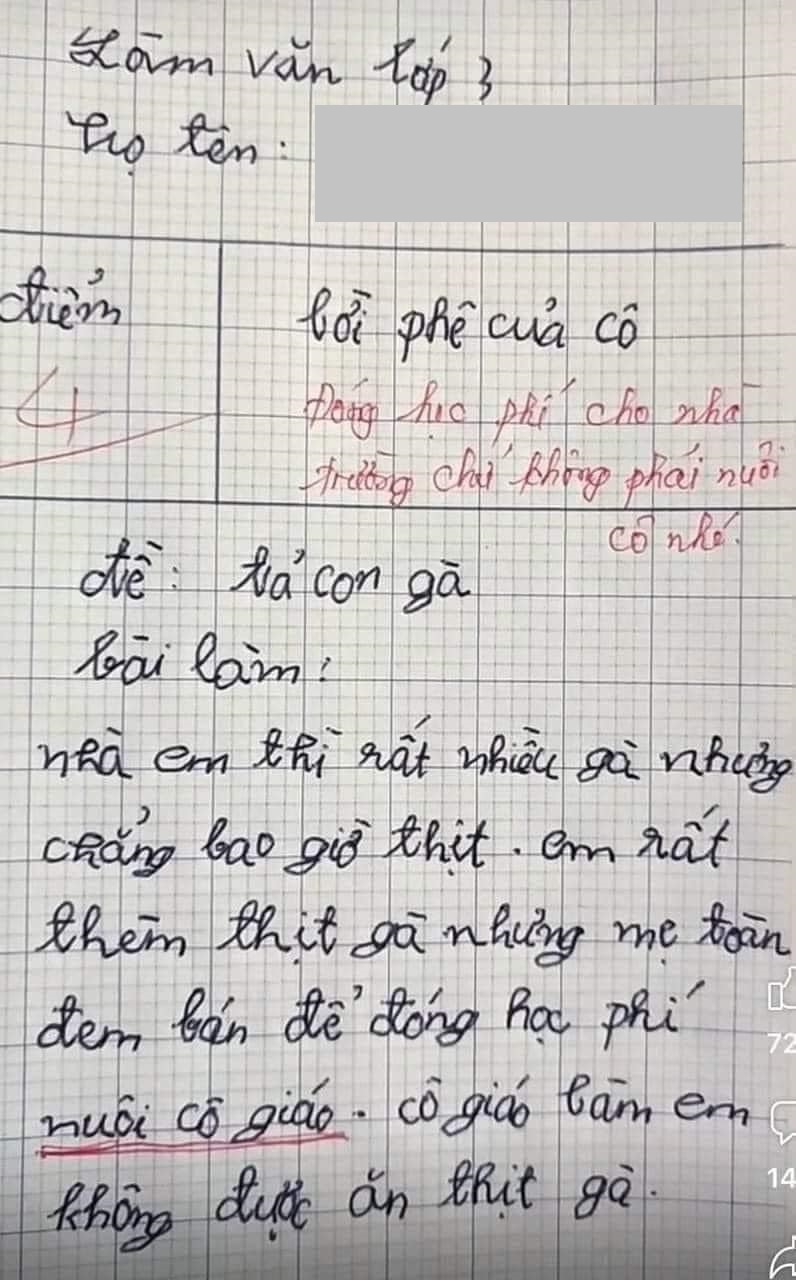 Làm văn lớp 3
Họ tên:
điểm
lời phê của cô
4
Đóng học phí cho nhà
trường chứ không phải nuôi
cô nhé.
đề: tả con gà
bài làm:
nhà em thì rất nhiều gà nhưng
chẳng bao giờ thịt. em rất
thèm thịt gà nhưng mẹ toàn
đem bán để đóng học phí
nuôi cô giáo. cô giáo làm em
không được ăn thịt gà.
72
14